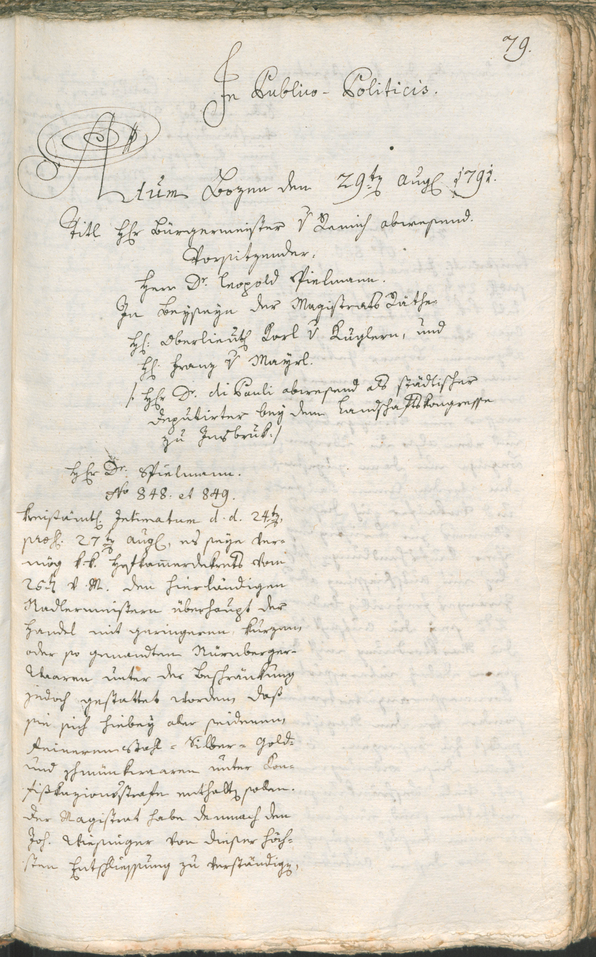 79.
In Publico-Politicis.
Actum Bozen den 29ten Augl 1791.
Titl Hr Bürgermeister v Remich abwesend.
Vorsitzender,
Herr Dr. Leopold Spielmann.
In Beyseyn der Magistrats Räthe
H: Oberlieut Karl v Kuglern, und
H: Franz v Mayrl.
/: Hr Dr. di Pauli abwesend als städtischer
Deputirter bey dem Landschaftskongresse
zu Insbruk. /
Hr Dr. Spielmann.
No 848. et 849.
Kreisämtl Intimatum d. d. 24ten,
pres. 27ten Augl, es seye ver-
mög k.k. Hofkammerdekrets vom
26ten v. M. den hierländigen
Nadlermeistern überhaupt der
Handel mit geringeren kurzen
oder so genandten Nürnberger-
Waaren unter der Beschränkung
jedoch gestattet worden, daß
sie sich hiebey aller seidenen
feineren Stahl- Silber- Gold-
und Schmuckwaaren unter Kon-
fiskazionsstrafe enthalten sollen.
Der Magistrat habe demnach den
Joh. Wiesinger von dieser höch-
sten Entschliessung zu verständigen,